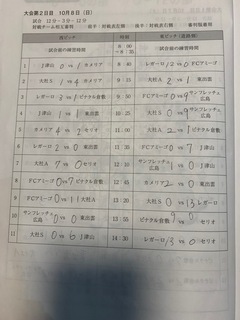 大会第2日目 10月8日(日)
試合 12分-3分-12分
対戦チーム相互審判 前半:対戦表左側 後半:対戦表右側 ・審判服着用
西ピッチ 時刻
試合前の練習時間 8:00 ~8:35 試合前の練習時間
1 J津山 0 vs 1 カメリア 8:40 レガーロ vs 0 FCアミーゴ
2 大社S 1 vs 4 カメリア 9:15 大社A 2 vs 1 東出雲
3 レガーロ 3 vs 1 ピナクル倉敷 9:50 FCアミーゴ 0 vs 9 サンフレッチェ広島
4 J津山 0 vs 1 東出雲 10:25 大社S 0 vs 9 サンフレッチェ広島
5 カメリア 4 vs 2 セリオ 11:00 大社A vs ピナクル倉敷
6 レガーロ 2 vs 0 東出雲 11:35 FCアミーゴ 0 vs 7 J津山
7 大社A 7 vs 0 セリオ 12:10 サンフレッチェ広島 vs J津山
8 FCアミーゴ 0 vs 7 ピナクル倉敷 12:45 カメリア 2 vs 0 東出雲
9 FCアミーゴ 0 vs 11 大社A 13:20 大社S 0 vs 13 レガーロ
10 サンフレッチェ広島 vs 0 東出雲 13:55 ピナクル倉敷 9 vs セリオ
11 大社S 0 vs 6 J津山 14:30 レガーロ 13 vs 0 セリオ